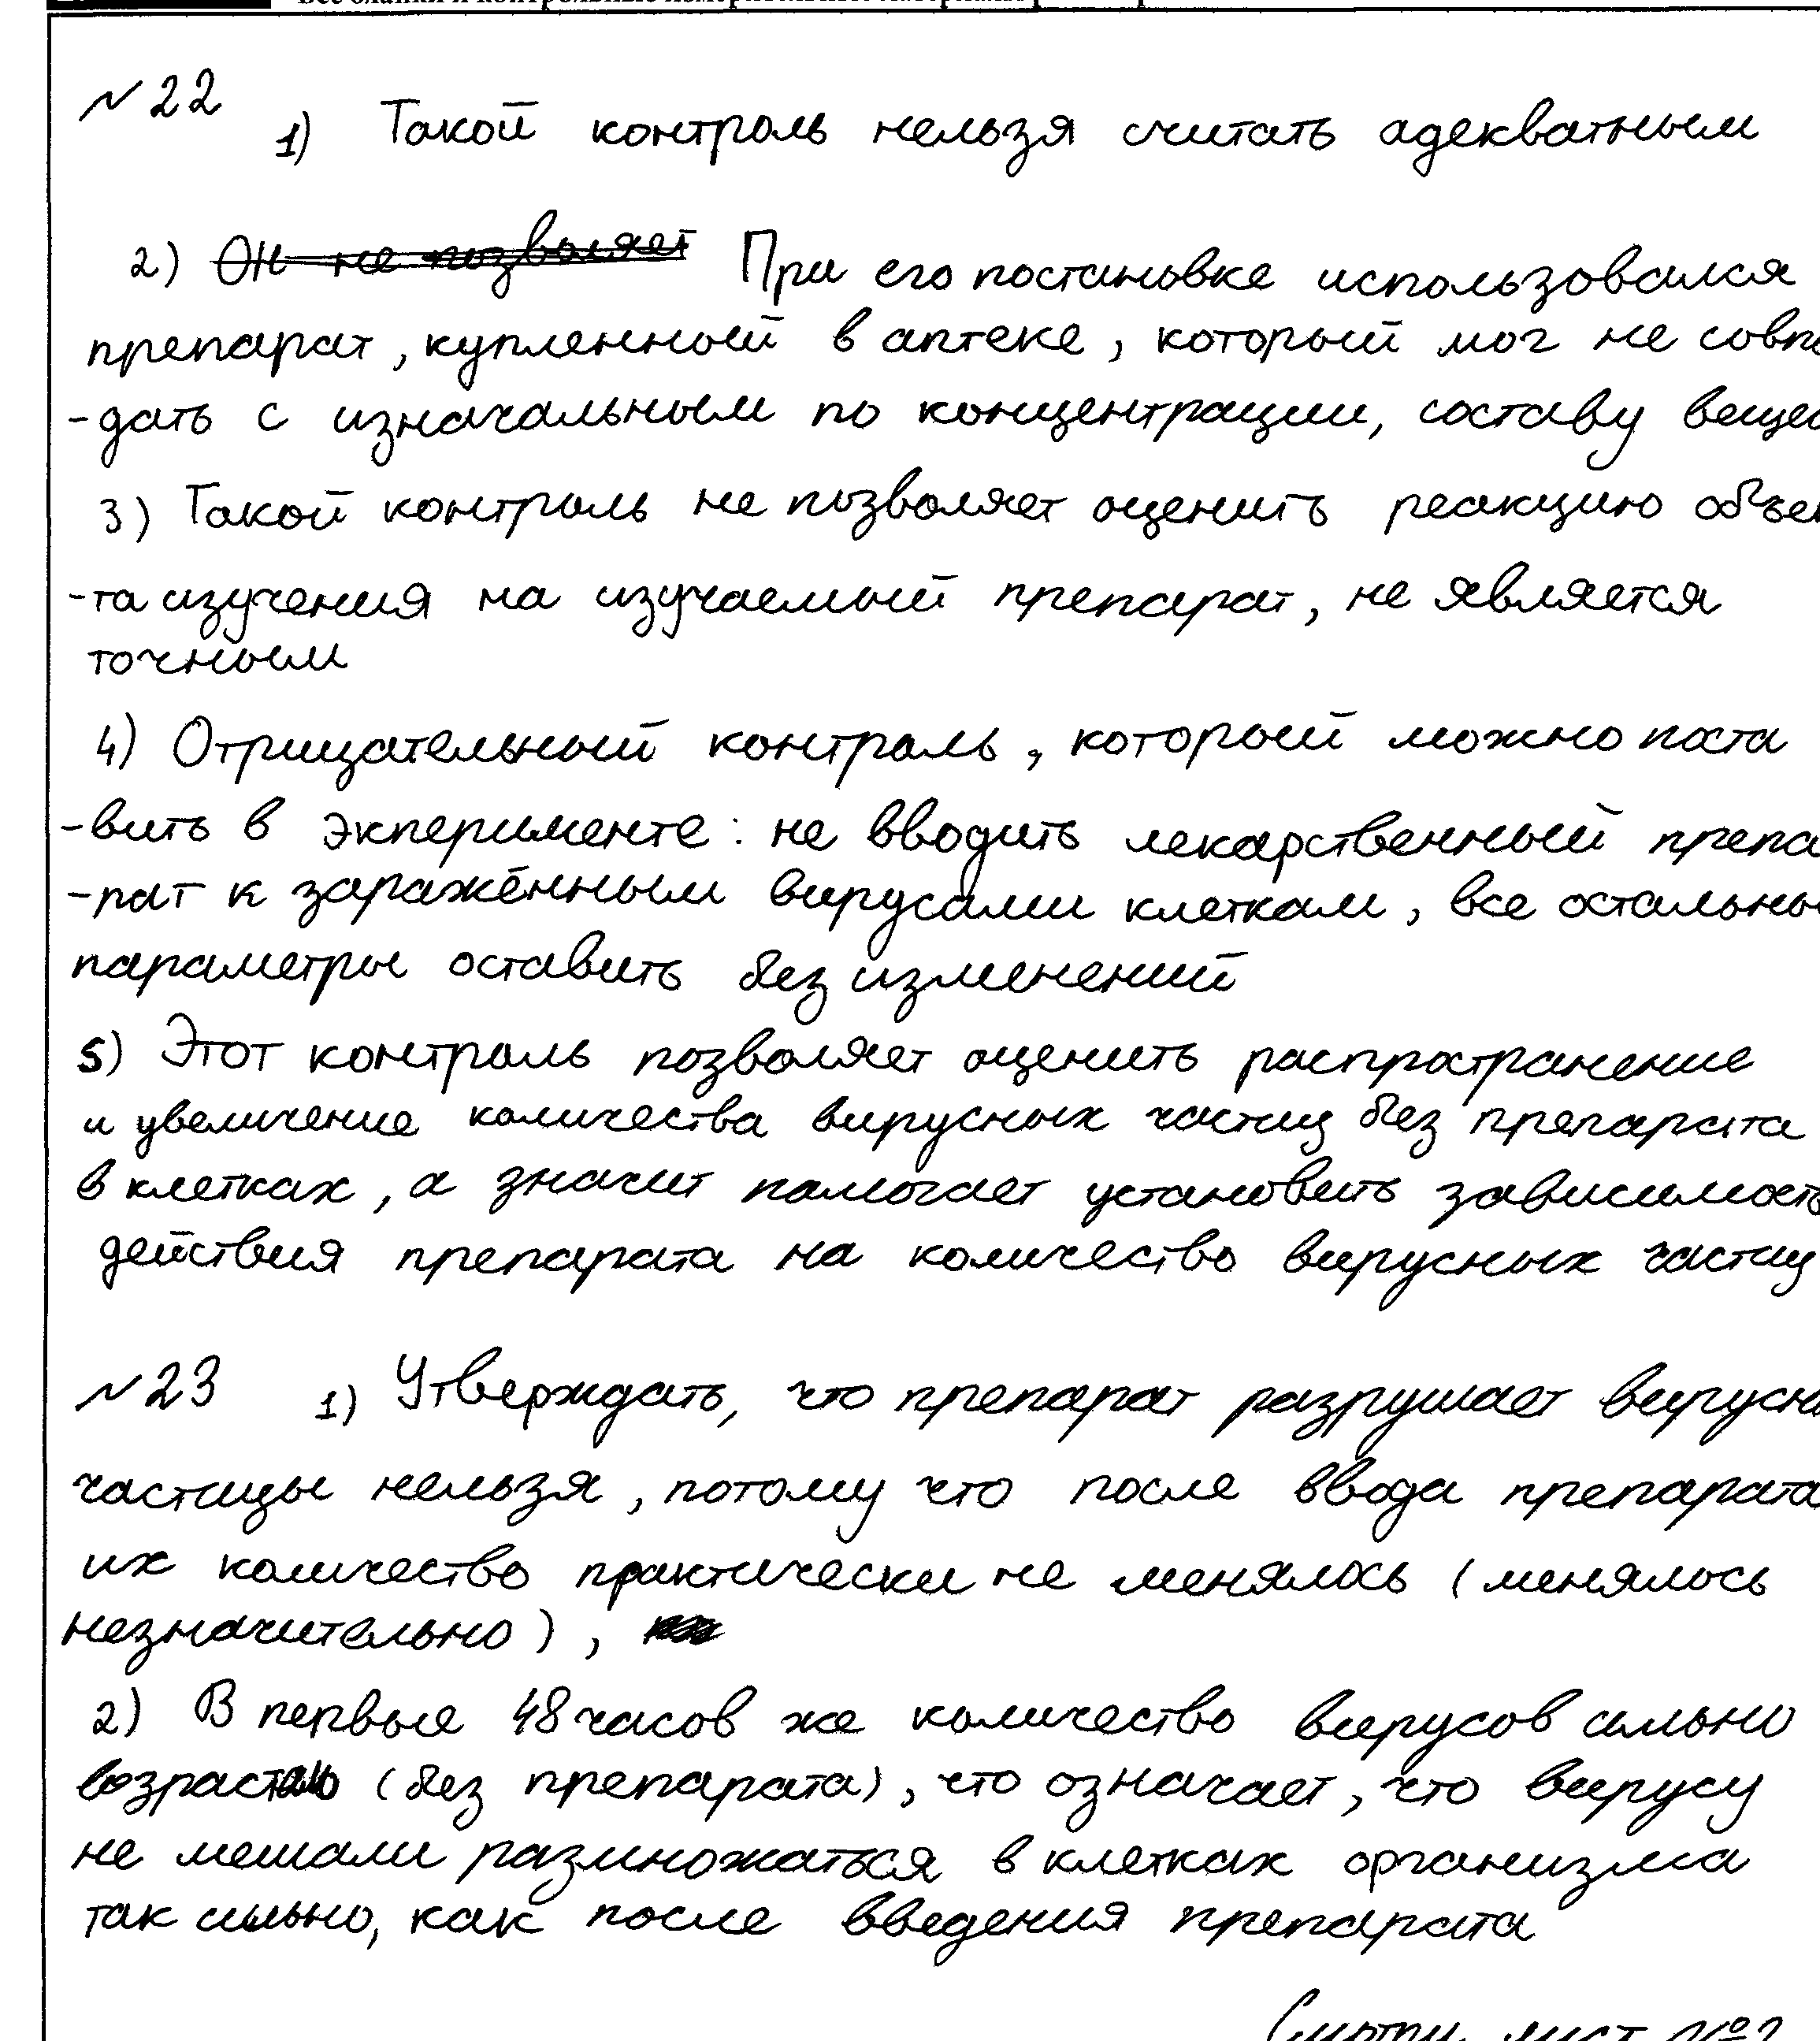 №22
1) Такой контроль нельзя считать адекватным
2) Он не позволяет При его постановке использовался
препарат, купленный в аптеке, который мог не совпа
-дать с изначальным по концентрации, составу вещес
3) Такой контроль не позволяет оценить реакцию объек
-та изучения на изучаемый препарат, не является
точным
4) Отрицательный контроль, который можно поста
-вить в экперименте: не вводить лекарственный препа
-рат к заражённым вирусами клеткам, все остальны
параметры оставить без изменений
5) Этот контроль позволяет оценить распространение
и увеличение количества вирусных частиц без препарата
в клетках, а значит помогает установить зависимость
действия препарата на количество вирусных частиц
№23 1) Утверждать, что препарат разрушает вирусн
частицы нельзя, потому что после ввода препарата
их количество практически не менялось (менялось
незначительно),
2) В первые 48 часов же количество вирусов сильно
возрастало (без препарата), что означает, что вирусу
не мешали размножаться в клетках организма
так сильно, как после введения препарата
Смотри лист №2